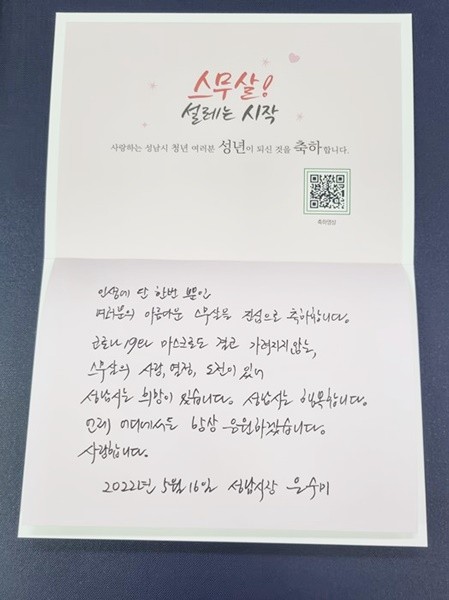 스무살!
설레는 시작
사랑하는 성남시 청년 여러분 성년이 되신 것을 축하합니다.
축하영상
인생에 단 한번 뿐인
여러분의 아름다운 스무살을 진심으로 축하합니다.
코로나19와 마스크로도 결코 가려지지않는,
스무살의 사랑, 열정, 도전이 있어
성남시는 희망이 있습니다. 성남시는 행복합니다.
언제 어디에서든 항상 응원하겠습니다.
사랑합니다.
2022년 5월 16일 성남시장 은수미